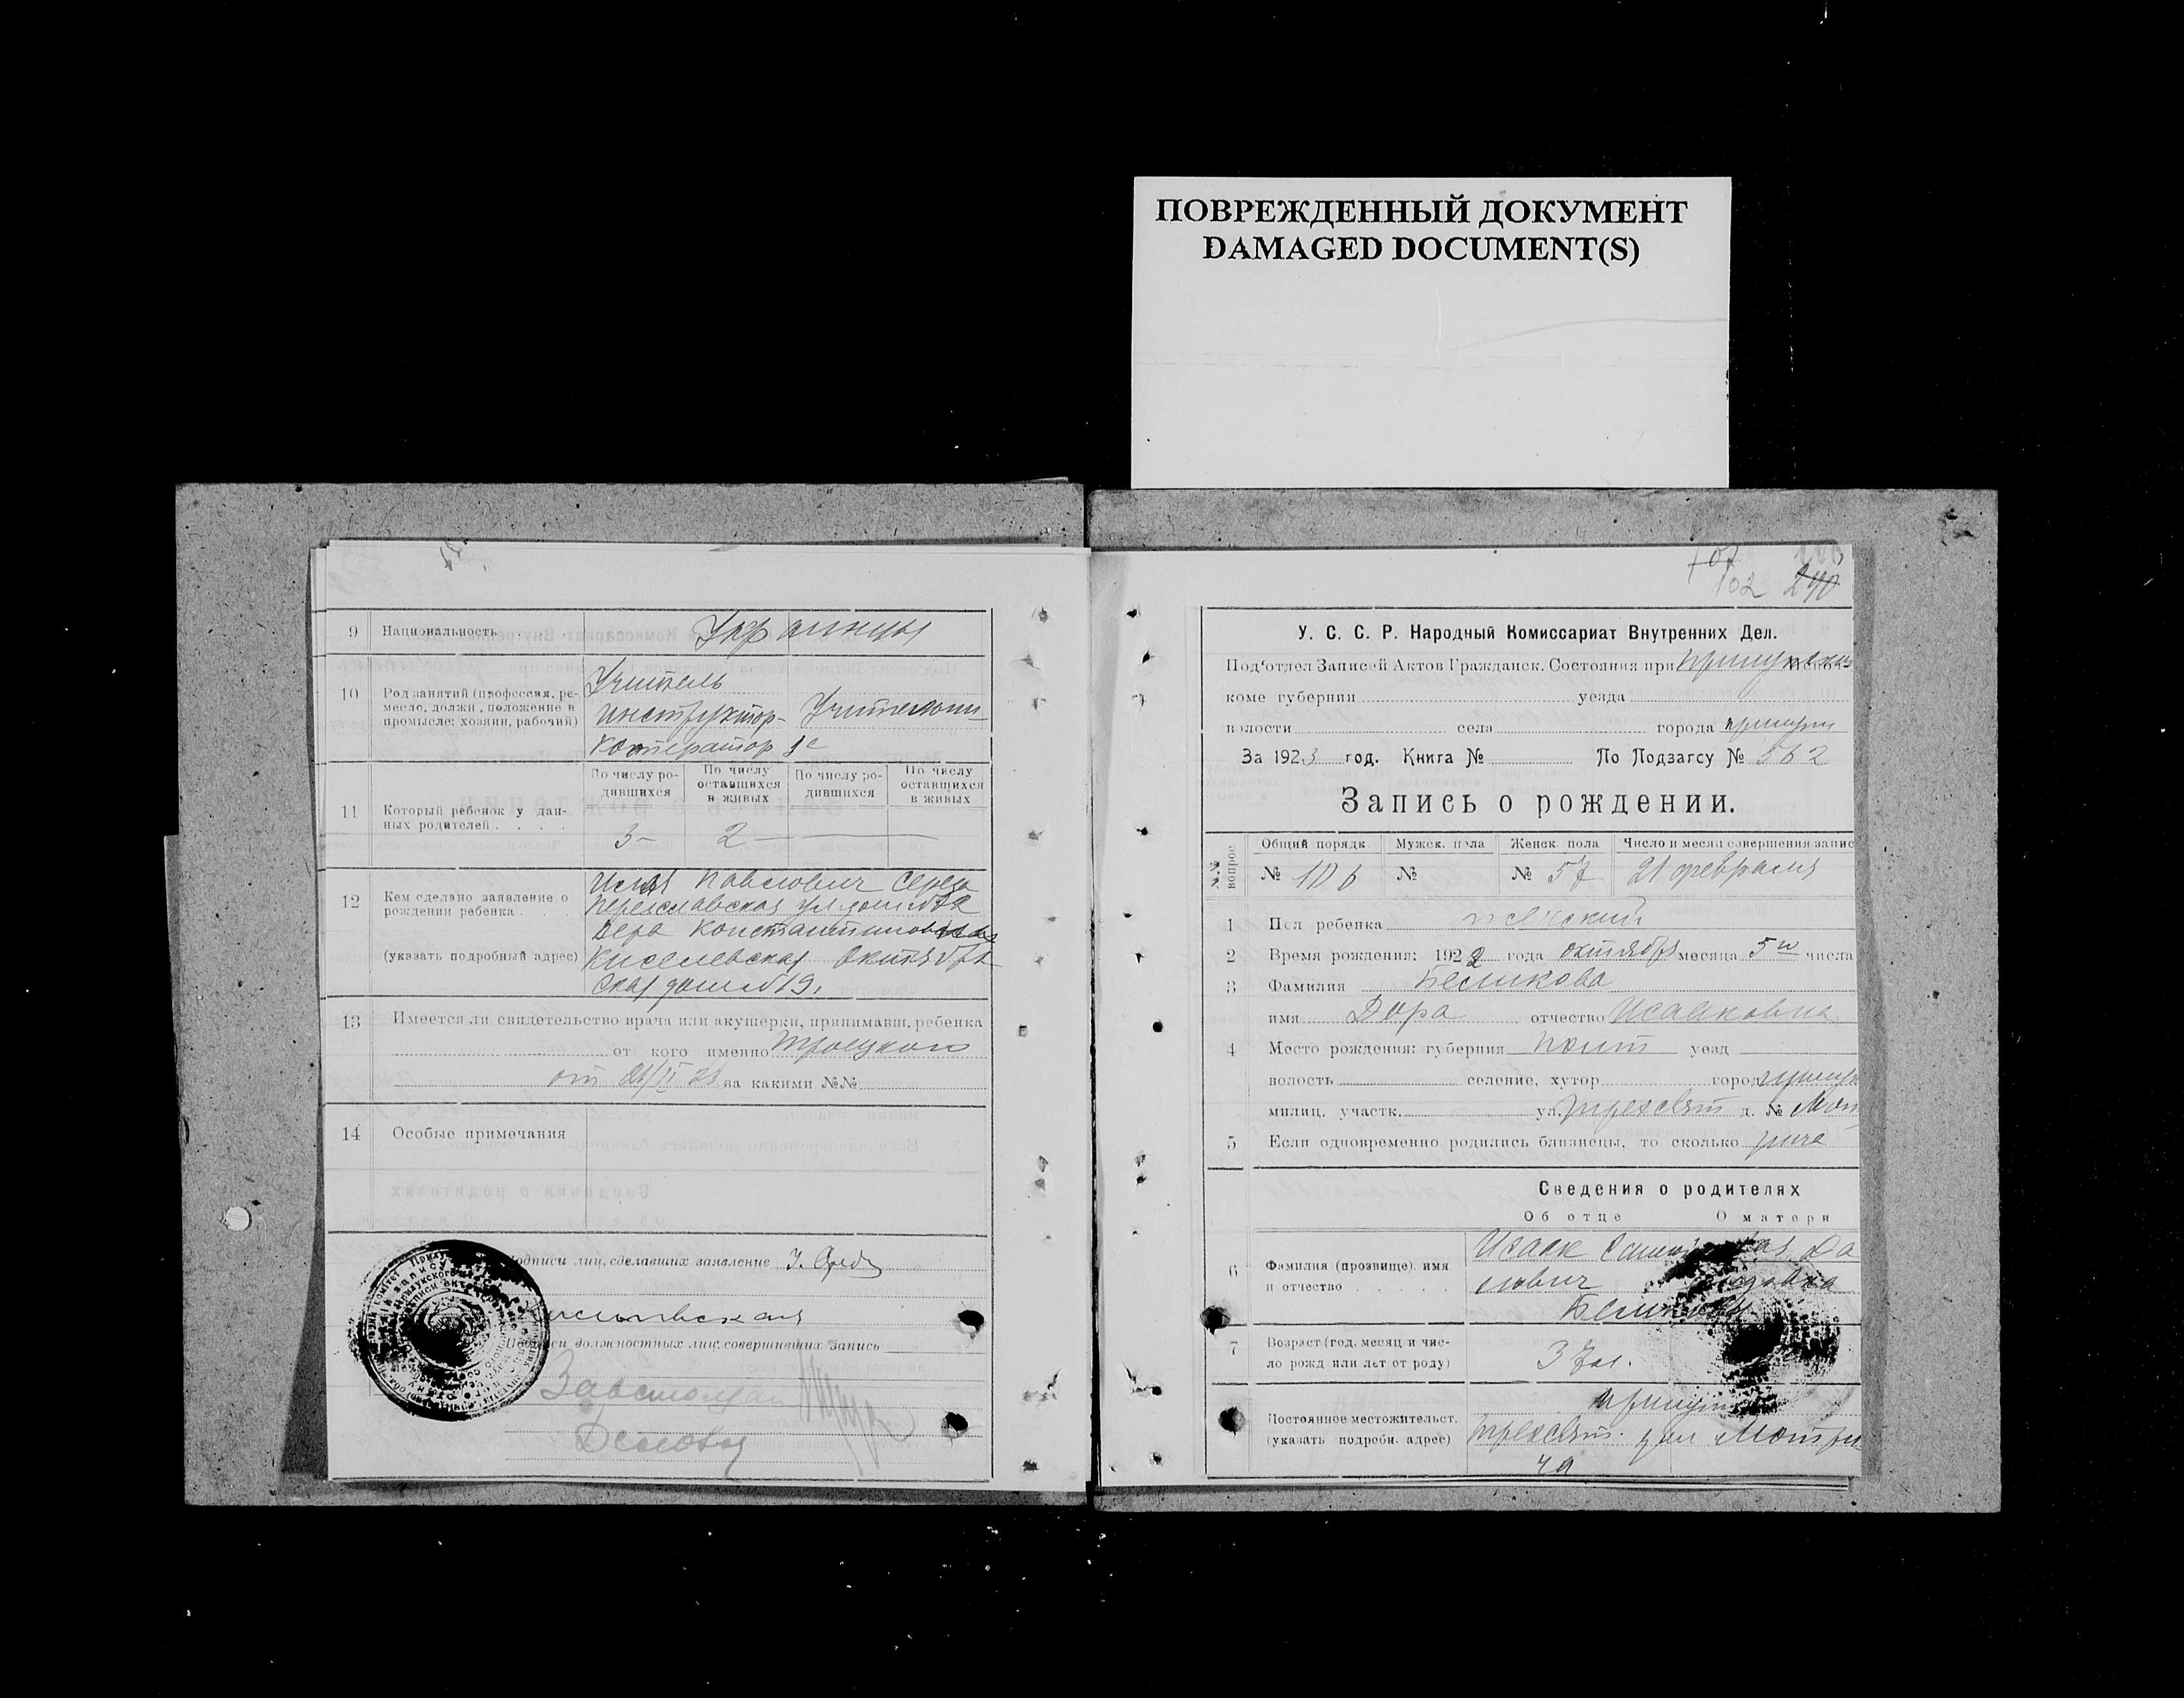 ПОВРЕЖДЕННЫЙ ДОКУМЕНТ
DAMAGED DOCUMENT(S)
9 Национальность Украинцы
10 Род занятий (профессия, ре-
месло, должн., положение в
промысле: хозяин, рабочий)
Учитель
инструктор- Учительни-
кооператор
11 Который ребенок у дан-
ных родителей
По числу ро-
дившихся
По числу
оставшихся
в живых
По числу ро-
дившихся
По числу
оставшихся
в живых
3- 2-
12 Кем сделано заявление о
рождении ребенка
(указать подробный адрес)
Павлович Середа
Переяславская ул дом
Вера Константиновна
Киселевская Октябрь
ская дом № 9,
13 Имеется ли свидетельство врача или акушерки, принимавш. ребенка
от кого именно Троцкой
от 21/II 23 за какими №№
14 Особые примечания
Подписи лиц, сделавших заявление
Киселевская
Подписи должностных лиц, совершивших запись
Завстолом
107
102 240
У. С. С. Р. Народный Комиссариат Внутренних Дел.
Под'отдел Записей Актов Гражданск. Состояния при
коме губернии уезда
волости села города Прилуки
За 1923 год. Книга № По Подзагсу № 562
Запись о рождении.
№№ вопрос
Общий порядк Мужск. пола Женск. пола Число и месяц совершения запис
№ 106 № № 57 21 февраля
1 Пол ребенка женский
2 Время рождения: 1922 года октября месяца 5го числа
3 Фамилия Беликова
имя Дора отчество Исааковна
4 Место рождения: губерния Полт уезд
волость селение, хутор город Прилук
милиц. участк. ул. Трехсвят д. № Мот
5 Если одновременно родились близнецы, то сколько рича
Сведения о родителях
Об отце О матери
6 Фамилия (прозвище), имя
и отчество
Исаак
Беликовы
7 Возраст (год, месяц и чис-
ло рожд. или лет от роду)
37 л.
Постоянное местожительст.
(указать подробн. адрес)
Трехсвят. дом Мотри
ча